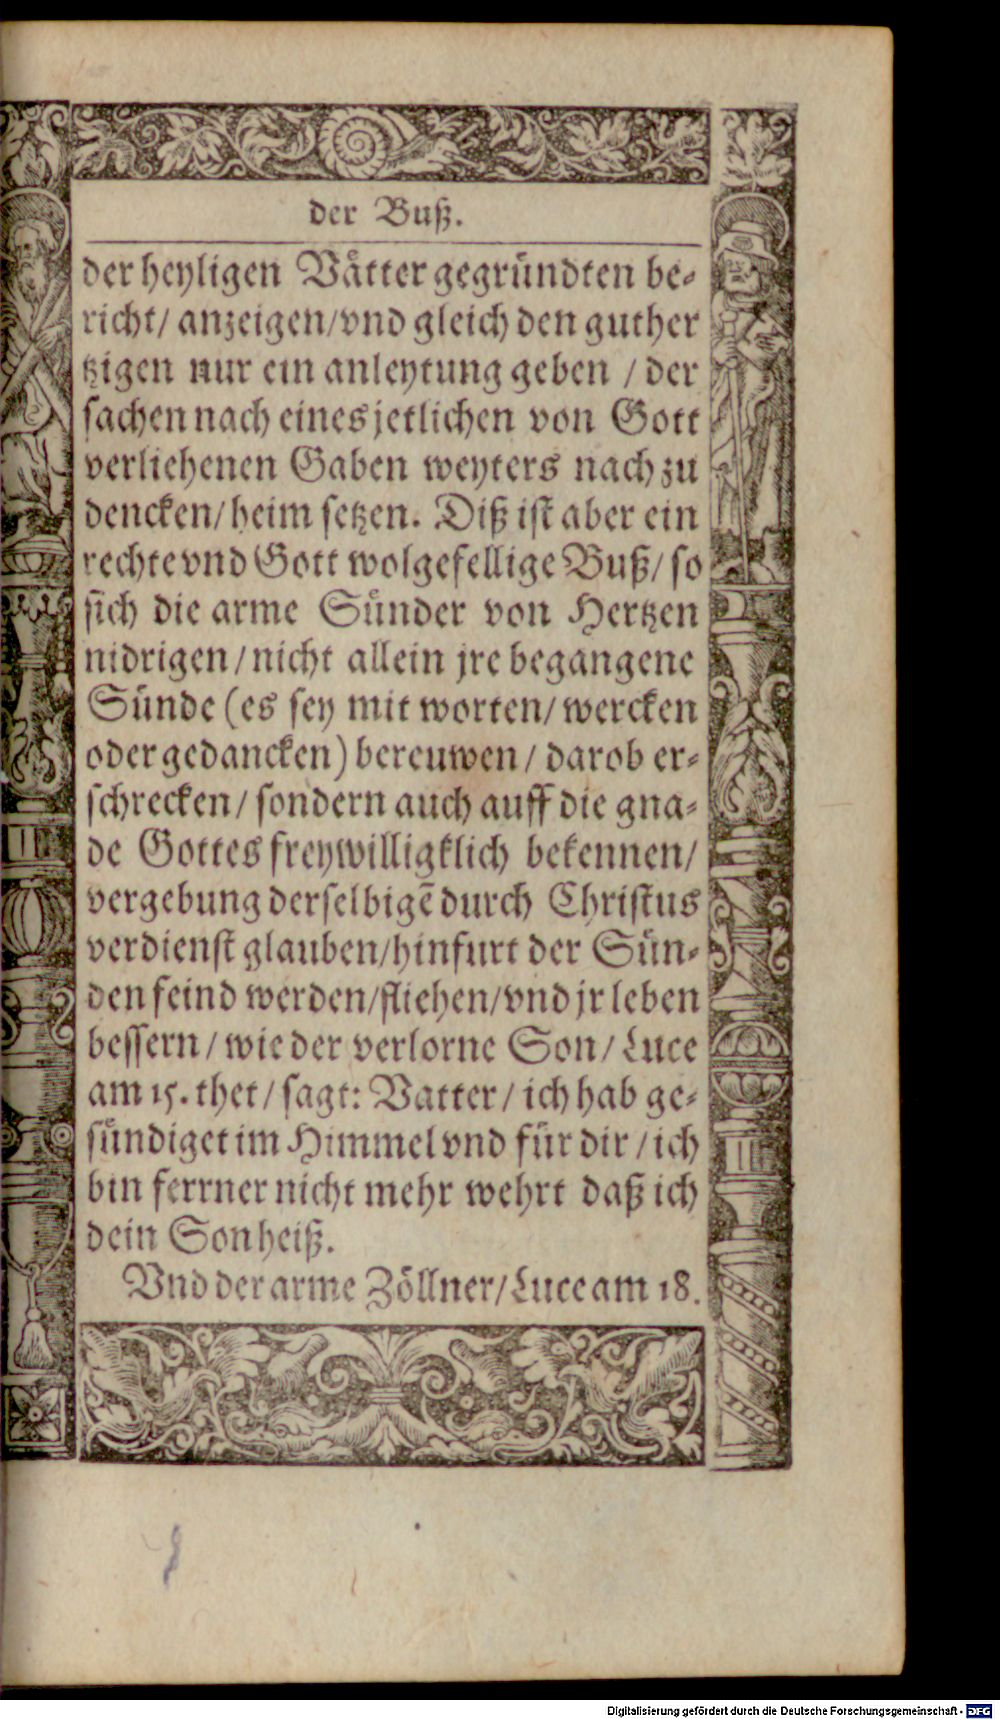 der Buß.
der heyligen Vaͤtter gegruͤndten be-
richt/ anzeigen/vnd gleich den guther
tzigen nur ein anleytung geben / der
sachen nach eines jetlichen von Gott
verliehenen Gaben weyters nach zu
dencken/ heim setzen. Diß ist aber ein
rechte vnd Gott wolgefellige Buß/ so
sich die arme Suͤnder von Hertzen
nidrigen/ nicht allein jre begangene
Suͤnde (es sey mit worten/ wercken
oder gedancken) bereuwen / darob er-
schrecken/ sondern auch auff die gna-
de Gottes freywilligklich bekennen/
vergebung derselbigẽ durch Christus
verdienst glauben/hinfurt der Suͤn-
den feind werden/fliehen/vnd jr leben
bessern/ wie der verlorne Son/ Luce
am 15. thet/ sagt: Vatter/ ich hab ge-
suͤndiget im Himmel vnd fuͤr dir / ich
bin ferrner nicht mehr wehrt daß ich
dein Son heiß.
Vnd der arme Zoͤllner/Luce am 18.
Digitalisierung gefördert durch die Deutsche Forschungsgemeinschaft - DFG